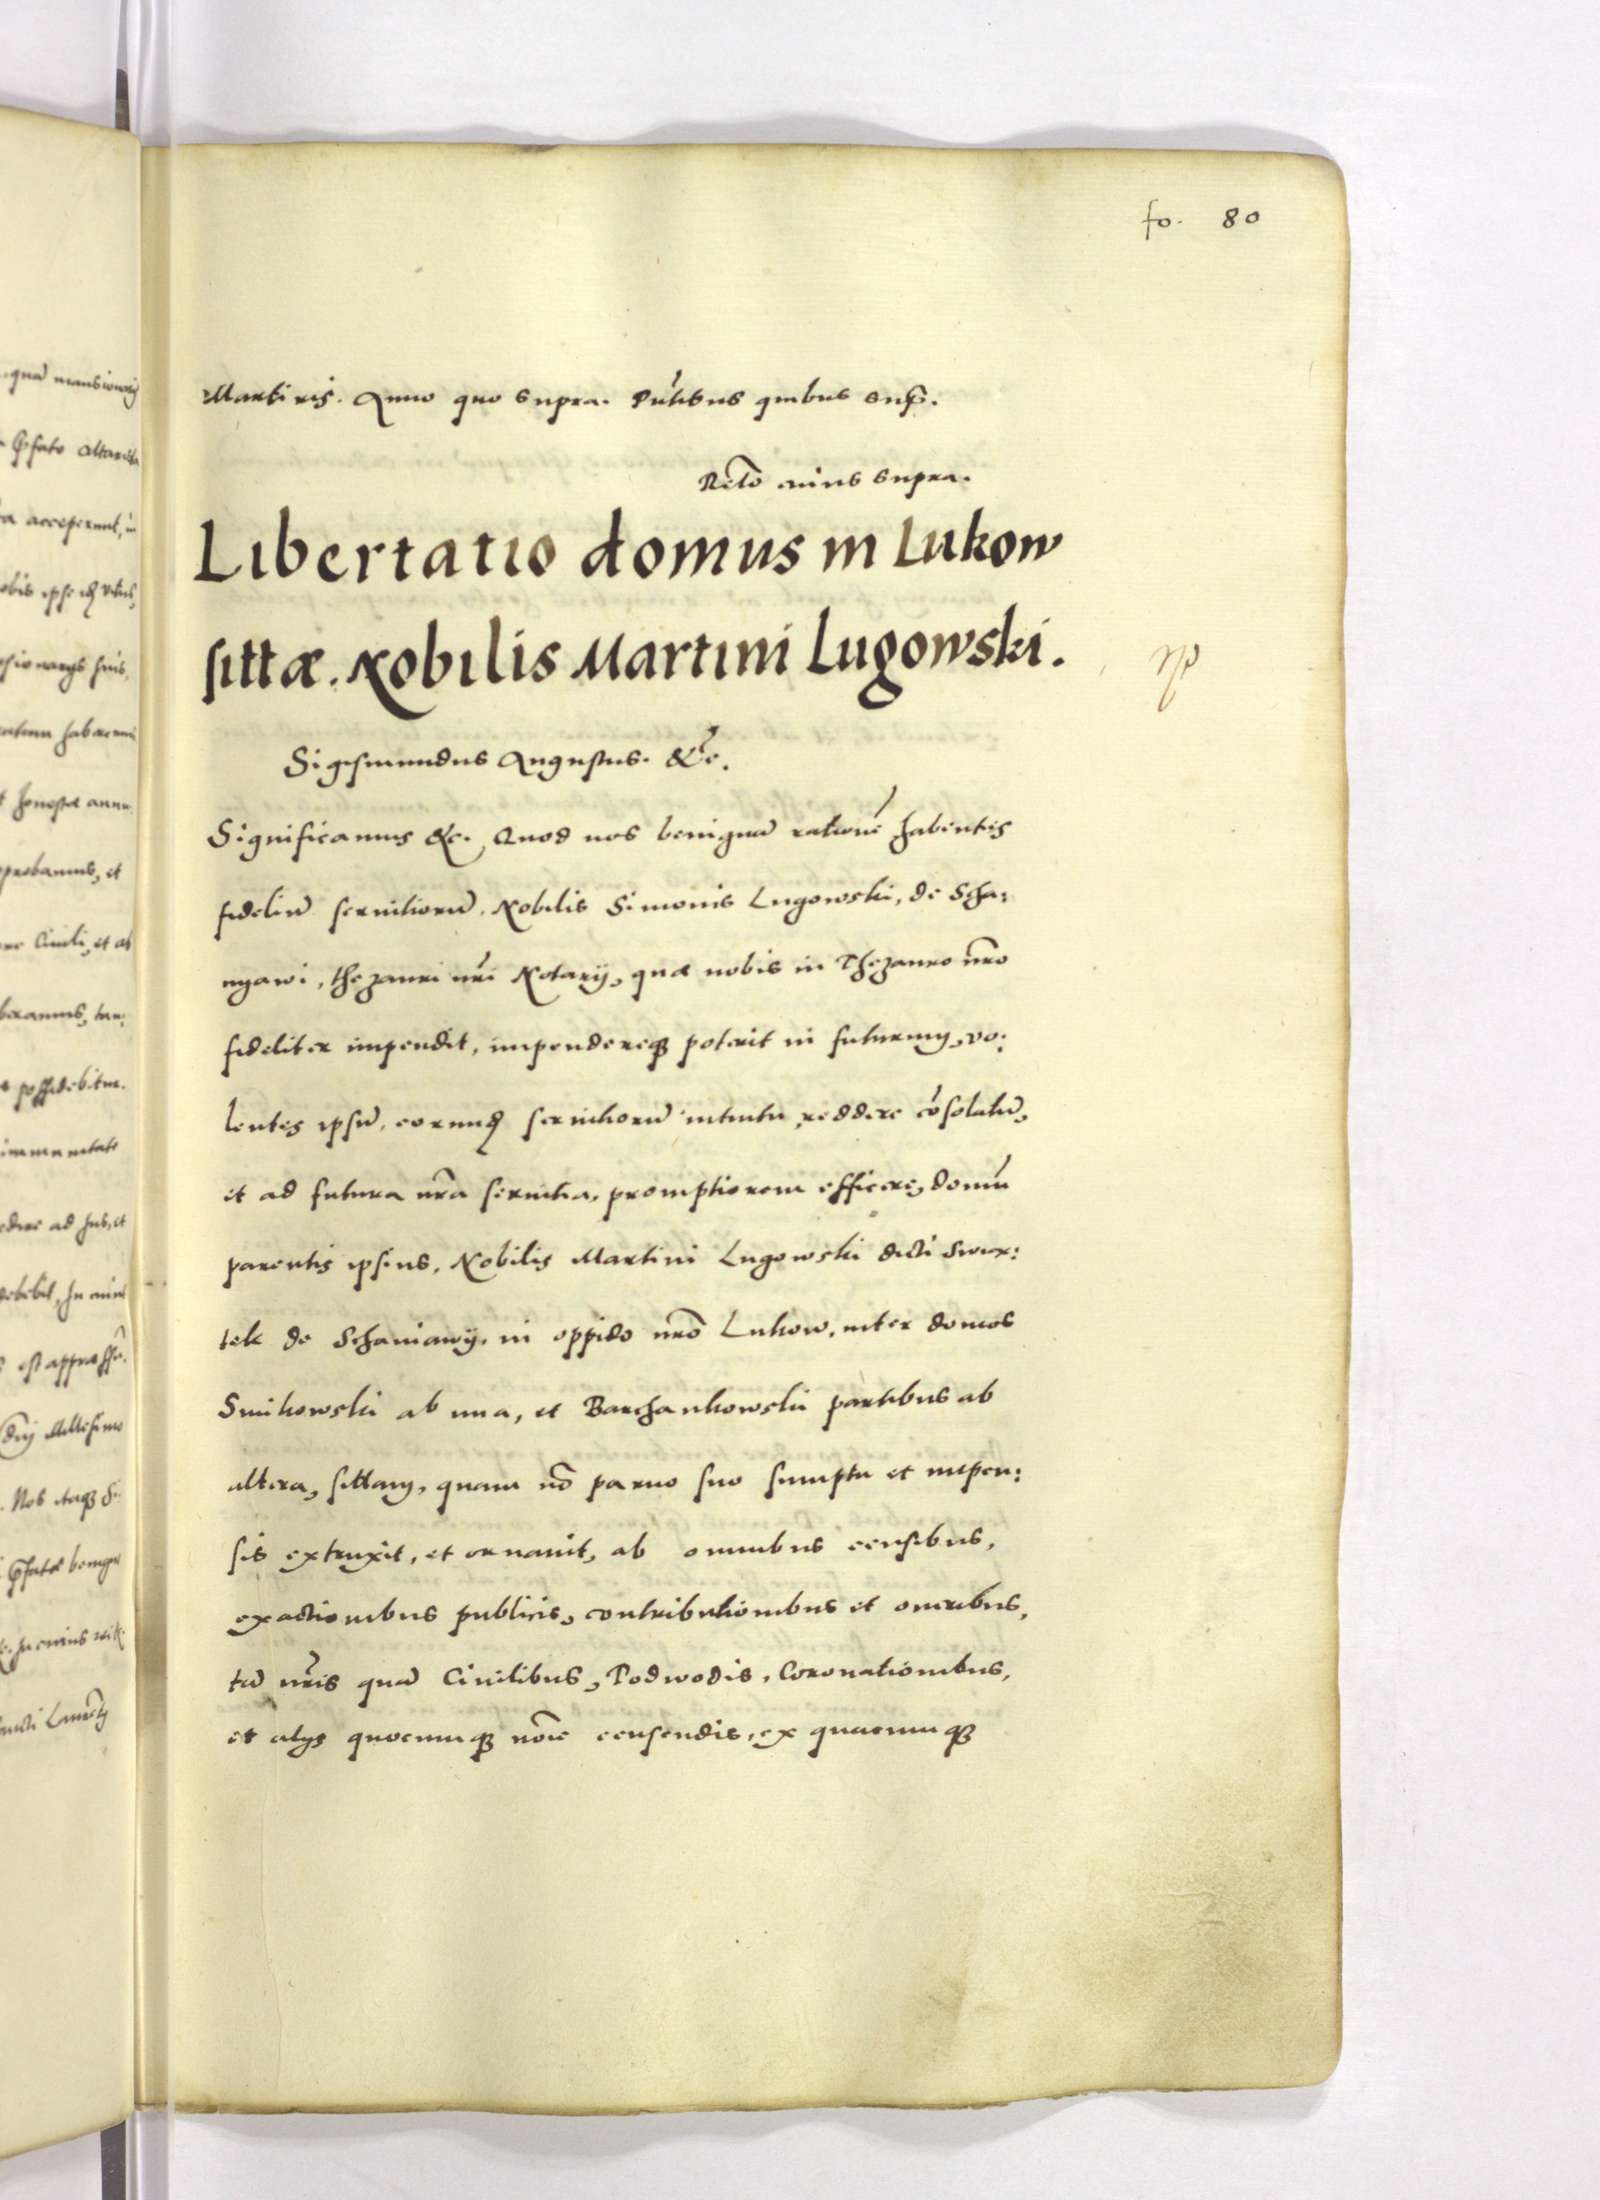 fo. 80
Martiris. Anno quo supra. Pñtibus quibus sup̃.
Relõ cuius supra.
Libertatio domus in Lukow
sittæ. Nobilis Martini Lugowski.
Sigismundus Augustus. &c̃.
Significamus &c. Quod nos benignã rationẽ habentes
fideliũ seruitiorũ, Nobilis Simonis Lugowski, de Scha:
nyawi, thezauri nr̃i Notarij, quæ nobis in Thezauro nr̃o
fideliter impendit, impendereqꝫ poterit in futurum, vo:
lentes ipsũ, eorundꝫ seruitiorũ intuitu reddere cõsolatũ,
et ad futura nr̃a seruitia, promptiorem efficere, domũ
parentis ipsius, Nobilis Martini Lugowski dicti Swier:
tek de Schaniawy, in oppido nr̃o Lukow, inter domos
Smikowski ab una, et Barchankowski partibus ab
altera, sittam, quam nõ paruo suo sumptu et impen:
sis extruxit, et ornauit, ab omnibus censibus,
exactionibus publicis, contributionibus et oneribus,
tã nr̃is quã Ciuilibus, Podwodis, Coronationibus,
et alijs quocunqꝫ nõie censendis, ex quacunqꝫ